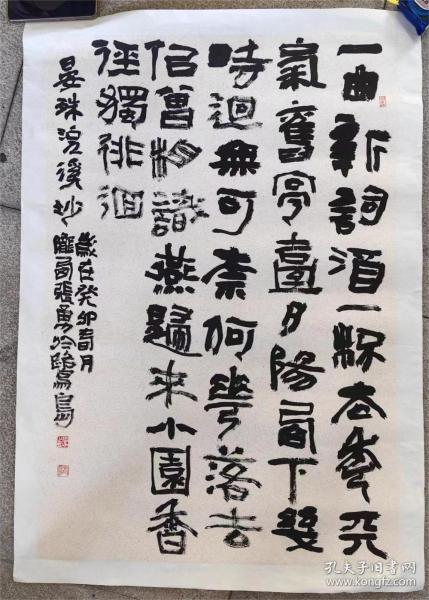 一曲新詞酒一杯去年天
氣舊亭臺夕陽西下幾
時迴無可柰何華落去
佀曾相識燕歸來小園香
徑獨徘徊
晏殊浣溪沙
歲在癸卯春月
隴西張勇於鷺島
孔夫子旧书网
www.kongfz.com